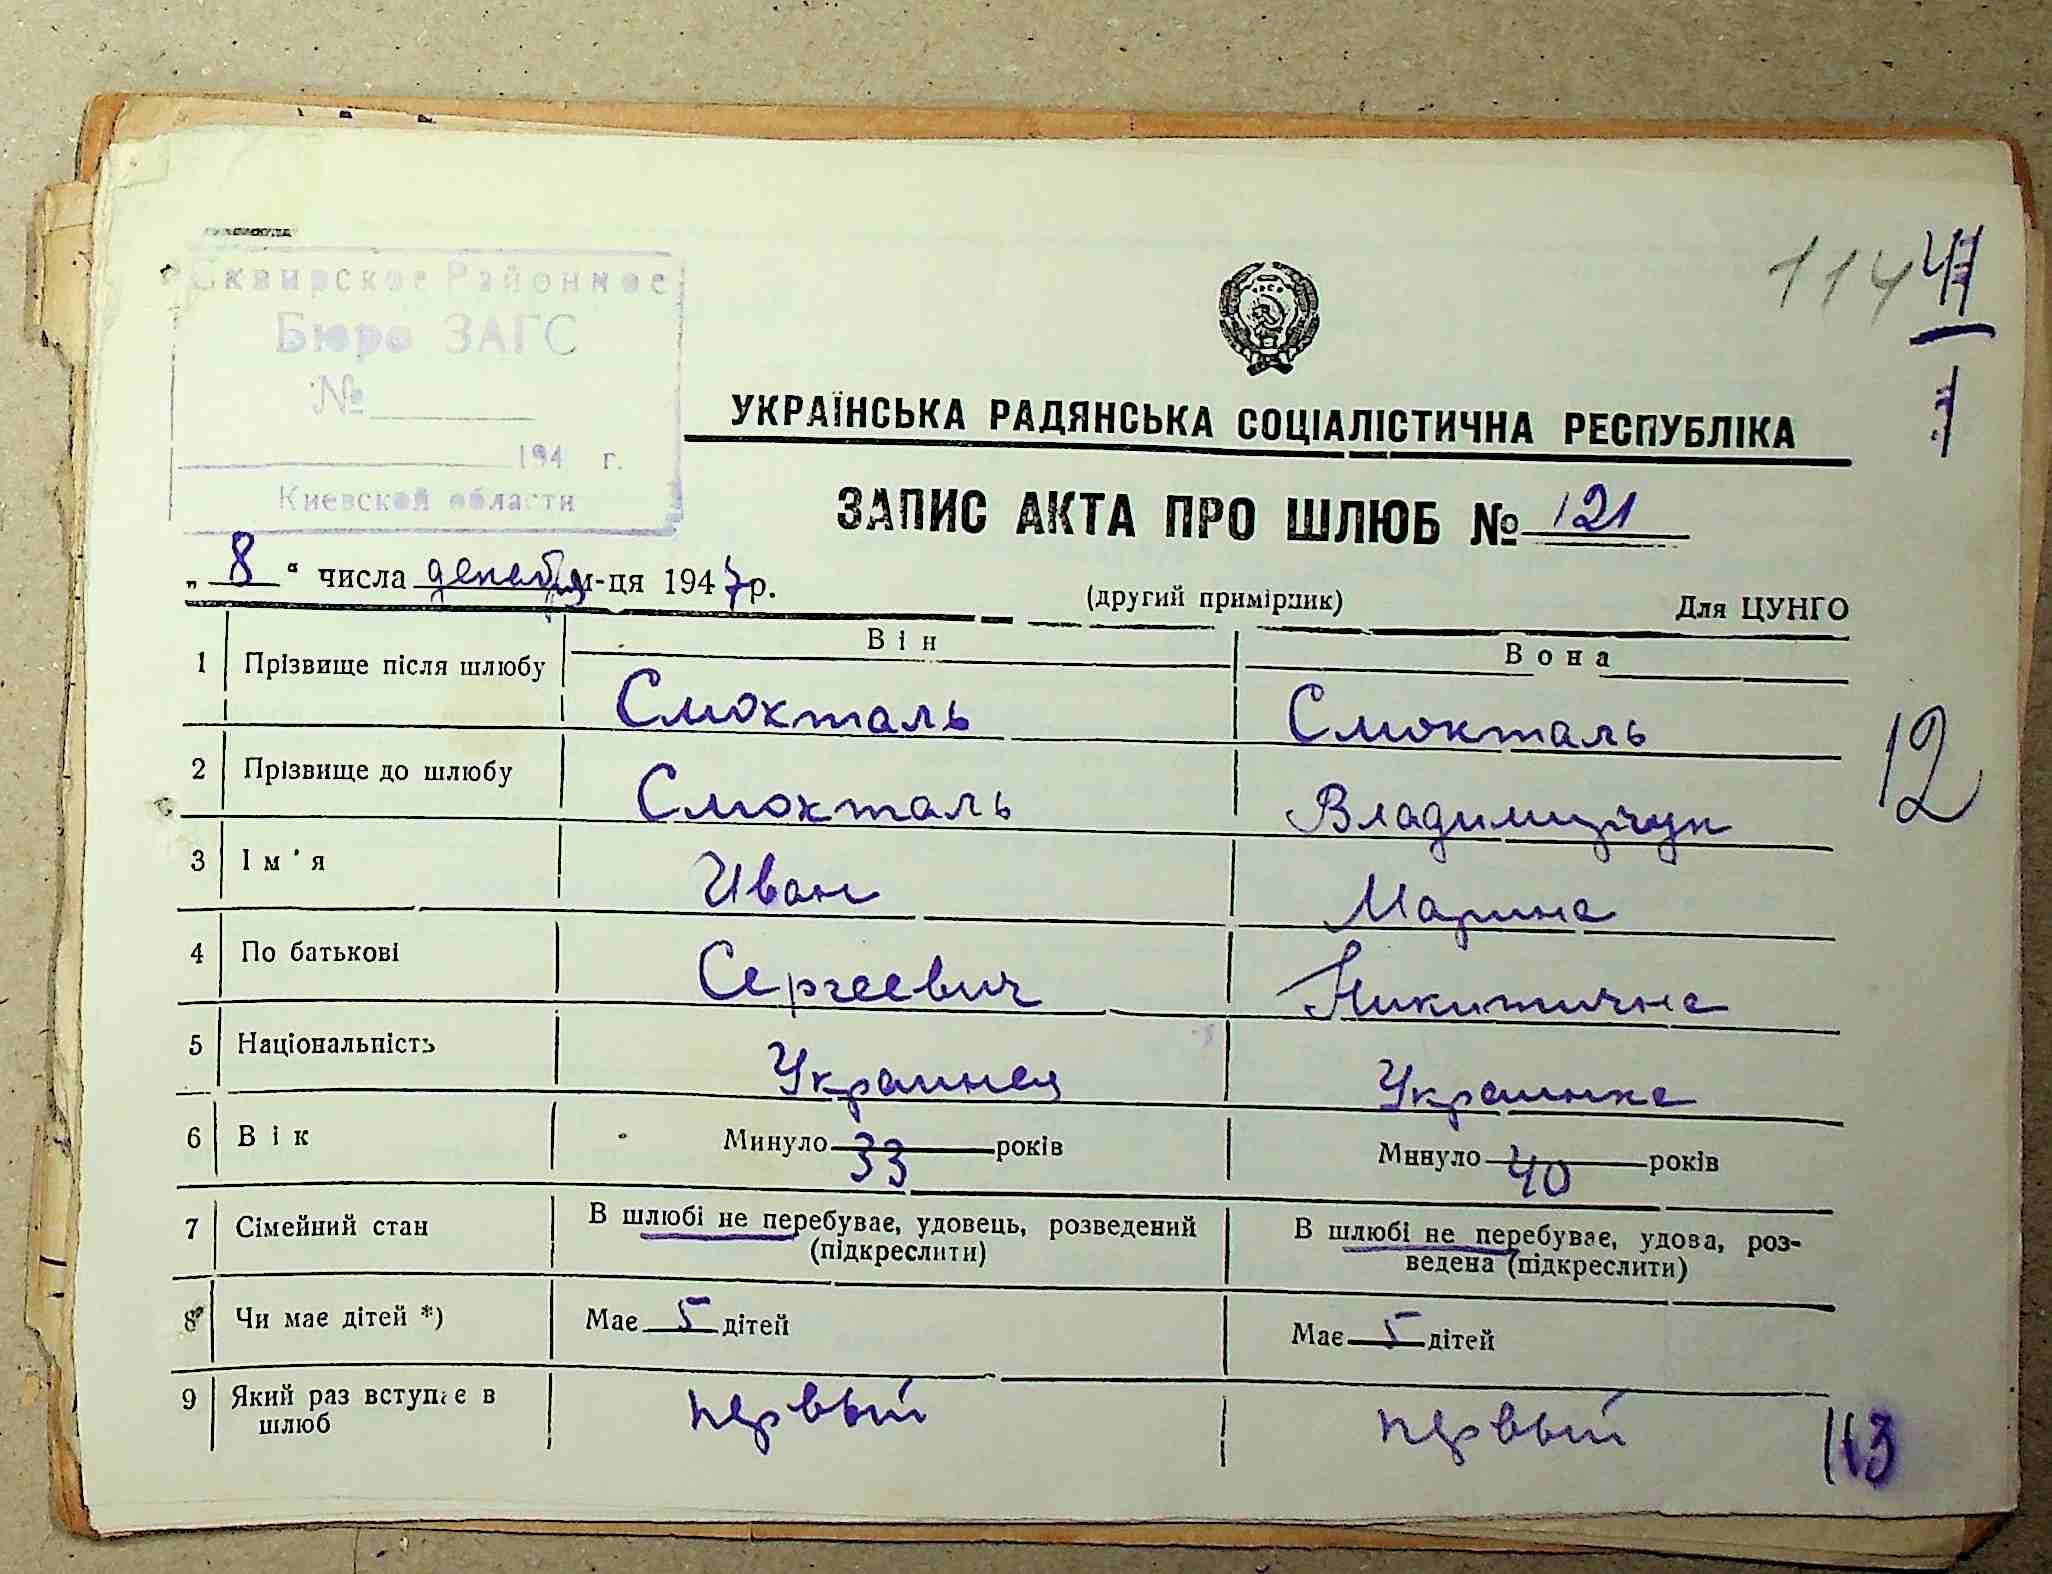 Сквирское Районное
Бюро ЗАГС
№
194 г.
Киевской области
114
УКРАЇНСЬКА РАДЯНСЬКА СОЦІАЛІСТИЧНА РЕСПУБЛІКА
ЗАПИС АКТА ПРО ШЛЮБ № 121
„ 8 “ числа декабря м-ця 1947 р.
(другий примірник) Для ЦУНГО
Він Вона
1 Прізвище після шлюбу Смокталь Смокталь
2 Прізвище до шлюбу Смокталь Владимирчук
12
3 Ім'я Иван Марина
4 По батькові Сергеевич Никитична
5 Національність Украинец Украинка
6 Вік Минуло 33 років Минуло 40 років
7 Сімейний стан В шлюбі не перебуває, удовець, розведений (підкреслити) В шлюбі не перебуває, удова, роз-
ведена (підкреслити)
8 Чи має дітей *) Має 5 дітей Має 5 дітей
9 Який раз вступає в шлюб первый первый
113